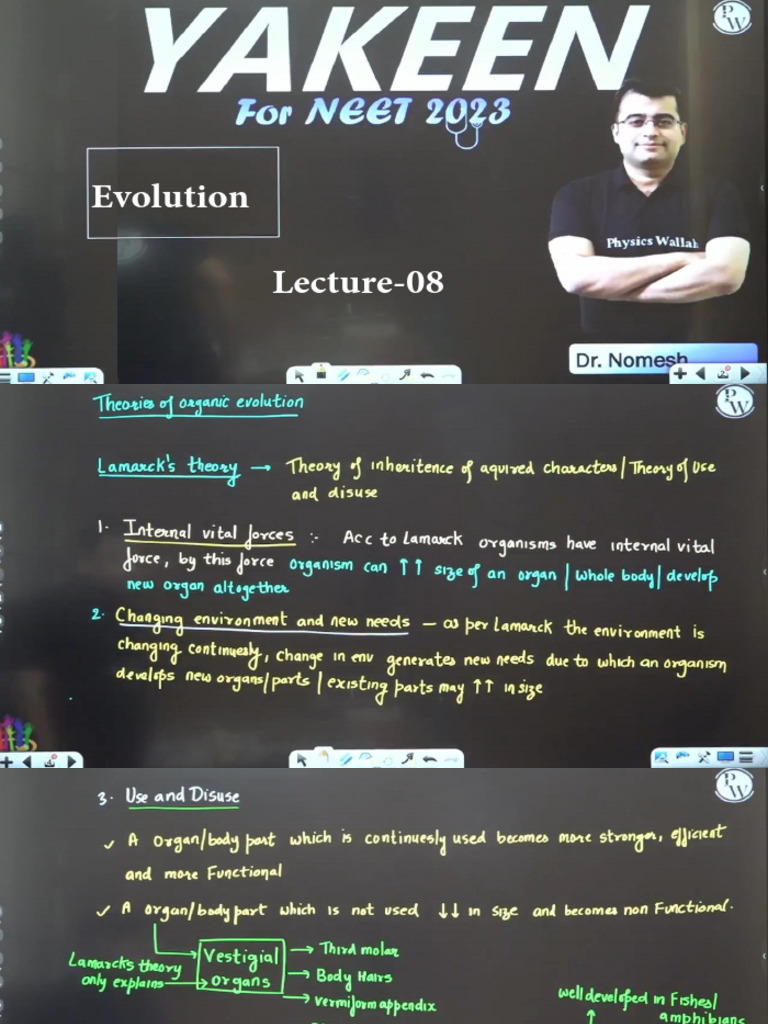 YAKEEN
PW
For NEET 2023
Evolution
Physics Wallah
Lecture-08
Dr. Nomesh
Theories of organic evolution
PW
Lamarck's theory → Theory of inheritence of aquired characters/Theory of Use
and disuse
1. Internal vital forces :- Acc to Lamarck organisms have internal vital
force, by this force organism can ↑↑ size of an organ / whole body/ develop
new organ altogether
2. Changing environment and new needs – as per Lamarck the environment is
changing continuesly, change in env generates new needs due to which an organism
develops new organs/parts / existing parts may ↑↑ in size
3. Use and Disuse
PW
✓ A organ/body part which is continuesly used becomes more stronger, efficient
and more Functional
✓ A organ/body part which is not used ↓↓ in size and becomes non Functional.
Lamarck's theory
only explains →
Vestigial
organs
→ Third molar
→ Body Hairs
→ Vermiform appendix
well developed in Fishes/
↑ amphibians